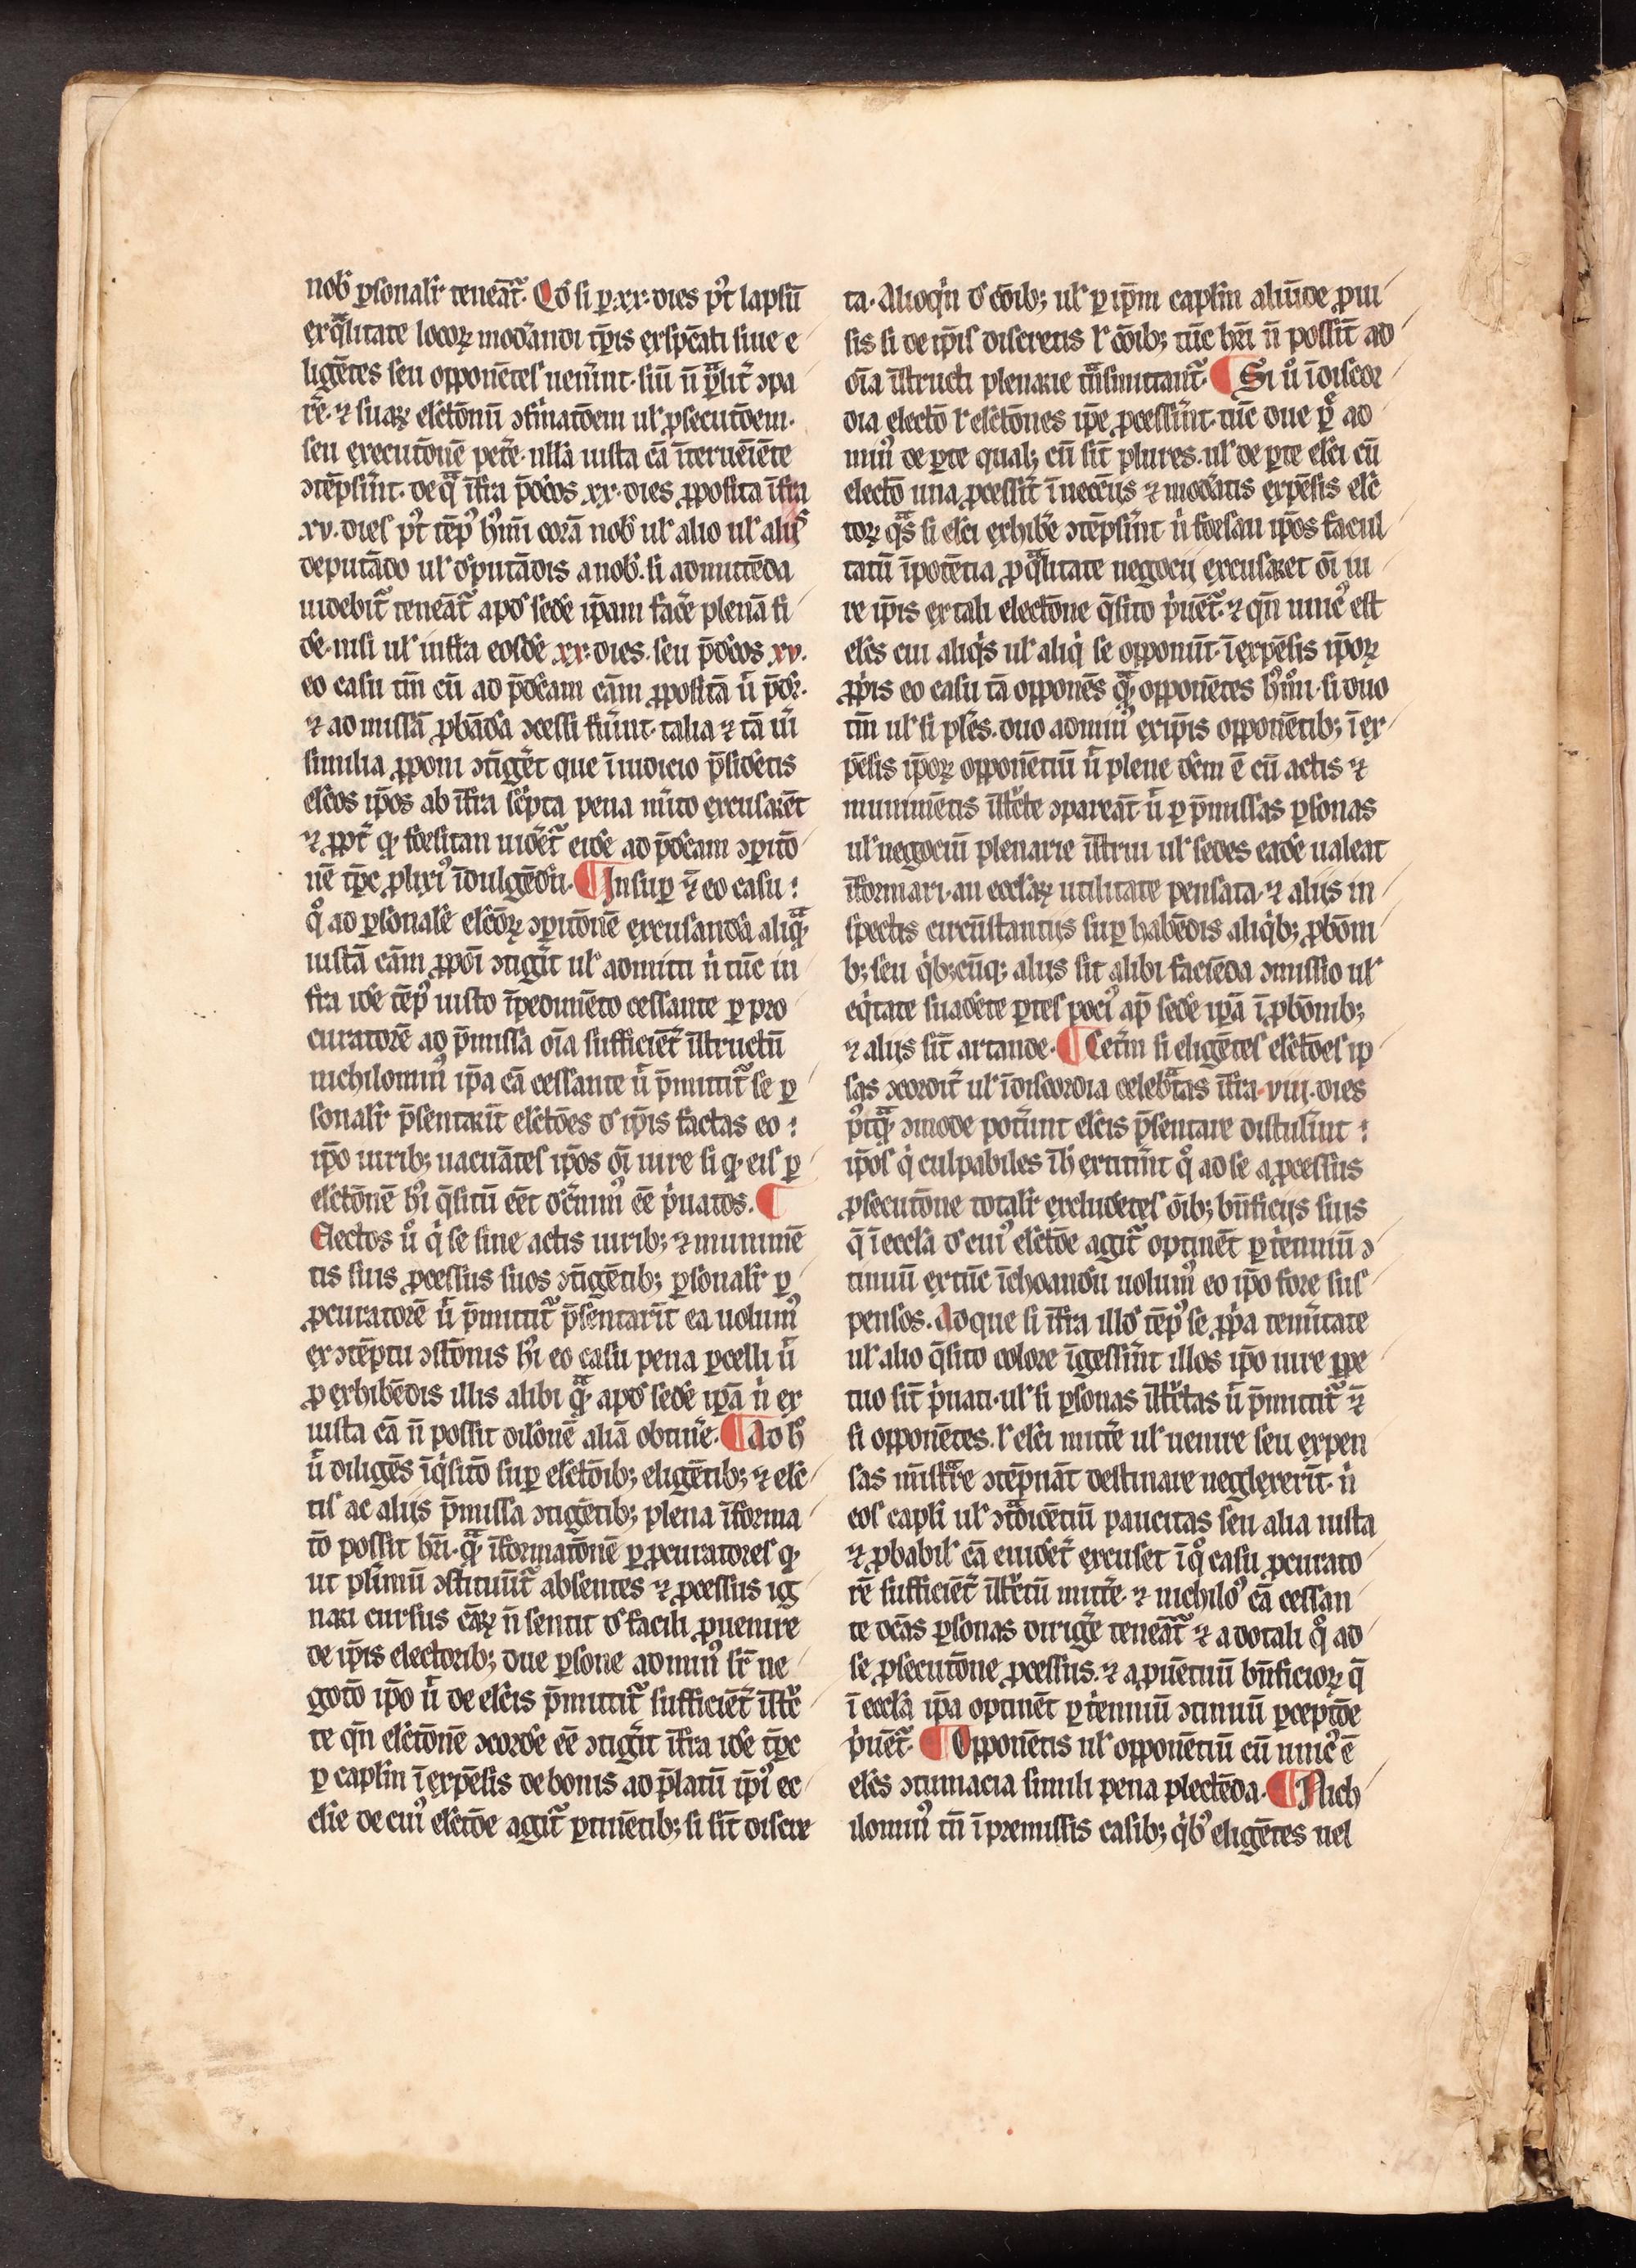 nob̾ ꝑsonalit̾ teneāt᷑. Qd̾ si ꝑ .xx. dies p̾t lapsū
ex q̄litate locoꝝ mod̾andi tp̄is exspc̄ati siue e
ligētes seu opponētes uen̾int. siū n̄ p̄lit̾ ↄpa
r̄e. ⁊ suaꝝ elc̄tōnū ↄfir̄natōem ul̾ ꝓsecutōem.
seu executōnē pet̾e. nulla iusta cā īterueīēte
ↄtēpsīnt. de q̄ īfra p̄dc̄os xx. dies ꝓposita īfra
xv. dies p̾t tēp̾ h̾im̄i corā nob̾ ul̾ alio ul̾ alijs
deputādo ul̾ d̾putādis a nob̾. si admittēda
uidebit᷑ teneāt᷑ apd̾ sedē ip̄am fac̾e plenā fi
dē. nisi ul̾ infra eosdē xx. dies. seu p̄dc̄os xv.
eo casu tm̄ cū ad p̄dc̄am cām ꝓpositā ū p̄dr̄.
⁊ admissā ꝓbādā ↄcessi fūint. talia ⁊ tā ūi
similia ꝓponi ↄtig̾et que ī iudicio p̄sidētis
elc̄os ip̄os ab īfra sc̄pta pena m̾ito excusarēt
⁊ ꝓpt̾ q̄ forsitan uidēt᷑ eidē ad p̄dc̄am ↄpitō
nē tp̄c ꝓlixi᷒ īdulgēdū. ¶ Insuꝑ ⁊̄ eo casu :
q̊ ad ꝑsonalē elc̄oꝝ ↄpitōnē excusandā aliq̄
iustā cām ꝓpōi ↄtig̾it ul̾ admitti n̾ tūc in
fra idē tēp̾ iusto īpedimēto cessante ꝑ pro
curatorē ad p̄missa oīa sufficiēt̾ īstructū
nichilomin᷒ ip̄a cā cessante ū p̄mittit᷑ se ꝑ
sonalit̾ p̄sentarīt elc̄tōes d̾ ip̄is factas eo :
ip̄o uirib; uacuātes ip̄os oī iure si q̄ eis ꝑ
elc̄tōnē h̾i q̄situ eēt d̾c̾nim᷒ eē p̾uatos. ¶
Electos ū q̾ se sine actis iurib; ⁊ munimē
tis suis ꝓcessus suos ↄtigētib; ꝑsonalit̾ ꝑ
ꝓcuratorē ū p̄mittit᷑ p̄sentarīt ea uolum᷒
ex ↄtēptu ↄstōnis h̾i eo casu pena ꝑcelli ū
ꝓ exhibēdis illis alibi q̄ apd̾ sedē ip̄ā n̾ ex
iusta cā n̄ possit dil̾onē aliā obtin̾e. ¶ Ad h̾
ū diligēs īq̾sitō suꝑ elc̄tōib; eligētib; ⁊ elc̄
tis ac alijs p̄missa ↄtigētib; plena īforma
tō possit hr̄i. q̄ īformatōnē ꝑ ꝓcuratores q̄
ut pl̾imū ↄstituūt᷑ absentes ⁊ ꝓcessus ig
nari cursus cāꝝ n̄ sentit d̾ facili ꝓuenire
de ip̄is electorib; due ꝑsone ad min᷒ sr̄ ne
gotō ip̄o ū de elc̄is p̄mittit᷑ sufficiēt̾ īstc̄
te qn̄ elc̄tōnē ↄcordē eē ↄtig̾it īfra idē tp̄c
ꝑ capl̾m ī expēsis de bonis ad p̄latū ip̄i᷒ ec
clie de cui᷒ elc̄tōe agit᷑ ꝑtinētib; si sīt discre
ta. Alioq̾n d̾ cōib; ul̾ ꝑ ip̄m capl̾m aliūde ꝓui
sis si de ip̄is discretis l̾ cōib; tūc hr̄i n̄ possīt ad
oīa īstructi plenarie tn̄smittant᷑. ¶ Si ū ī discor
dia electō l̾ elc̄tōnes ip̄e ꝓcess̾int. tūc due ꝑ ad
min᷒ de ꝑte qual; cū sīt plures. ul̾ de ꝑte elc̄i cū
electō una ꝓcess̾it ī necc̾ijs ⁊ mod̾atis expēsis elc̄
toꝝ q̄s si elc̄i exhib̾e ↄtēps̾int n̾ forsan ip̄os facul
tatū īpotētia ꝓ q̄litate negocij excusaret oī iu
re ip̄is ex tali electōne q̄sito p̾uēt᷑. ⁊ qn̄ unic᷒ est
elc̄s cui aliq̾s ul̾ aliq̾ se opponūt. ī expēsis ip̄oꝝ
ꝓp̾is eo casu tā opponēs q̄ opponētes h̾mōi. si duo
tm̄ ul̾ si pl̾es. duo ad min᷒ ex ip̄is opponētib; ī ex
pēsis ip̄oꝝ opponētiū ū plene dc̄m ē cū actis ⁊
munimētis īstc̄te ↄpareāt ū ꝑ p̄missas ꝑsonas
ul̾ negociū plenarie īstrui ul̾ sedes eadē ualeat
īformari. an ecclaꝝ utilitate pensata. ⁊ alijs in
spectis circūstantijs suꝑ habēdis aliq̾b; ꝓbōni
b; seu q̾b;cūq; alijs sit alibi faciēda ↄmissio ul̾
eq̾tate suadēte ꝑtes poci᷒ ap̄ sedē ip̄ā ī ꝓbōnib;
⁊ alijs sīt artande. ¶ Cet̾m si eligētes elc̄tōes ip
sas ↄcordit̾ ul̾ ī discordia celeb̾tas īfra .viij. dies
p᷒tq̄ ↄmode pot̾int elc̄is p̄sentare distul̾int :
ip̄os q̾ culpabiles īh̾ extit̾int q̊ ad se a ꝓcessus
ꝓsecutōne totalit̾ excludētes oīb; bn̄ficijs suis
q̄ ī eccla d̾ cui᷒ elc̄tōe agit᷑ optinēt ꝑ t̾enniū ↄ
tinuū extūc īchoandū uolum᷒ eo ip̄o fore sus
pensos. Adque si īfra illd̾ tēp᷒ se ꝓp̾a tem̾itate
ul̾ alio q̄sito colore īgess̾int illos ip̄o iure ꝑpe
tuo sīt p̾uati. ul̾ si ꝑsonas īstc̄tas ū p̄mittit᷑ ⁊̄
si opponētes. l̾ elc̄i mitt̾e ul̾ uenire seu expen
sas mīstr̄e ↄtēpn̄āt destinare neglexerīt. n̾
eos capl̾i ul̾ ↄt̄dicētiū paucitas seu alia iusta
⁊ ꝓbabil̾ cā euidēt̾ excuset ī q̊ casu ꝓcurato
rē sufficiēt̾ īstc̄tū mitt̾e. ⁊ nichilo᷒ cā cessan
te dc̄as ꝑsonas dirig̾e teneāt᷑ ⁊ a dotali q̊ ad
se ꝓsecutōne ꝓcessus. ⁊ a ꝓuētuū bn̄ficioꝝ q̄
ī eccla ip̄a optinēt ꝑ t̾enniū ↄtinuū ꝑceptōe
p̾uēt᷑. ¶ Opponētis ul̾ opponētiū cū unic᷒ ē
elc̄s ↄtumacia simili pena plectēda. ¶ Nich
ilomin᷒ tn̄ ī premissis casib; q̾b᷒ eligētes uel